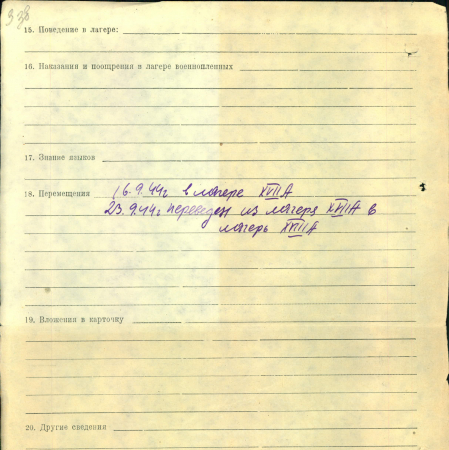 15. Поведение в лагере:
16. Наказания и поощрения в лагере военнопленных
17. Знание языков
18. Перемещения 16.9.44г в лагере XVIIA
23.9.44г переведен из лагеря XVIIA в
лагерь XVIIIA
19. Вложения в карточку
20. Другие сведения